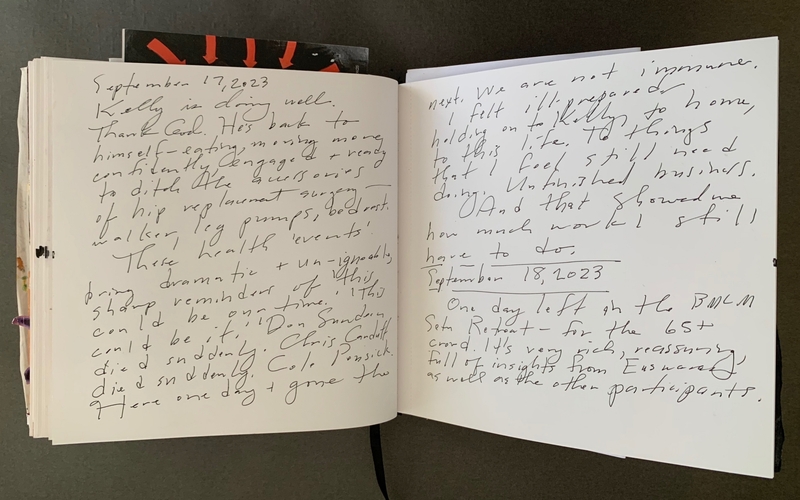 September 17, 2023
Kelly is doing well.
Thank God. He's back to
himself-eating, moving more
confidently, engaged + ready
to ditch the accessories
of hip replacement surgery—
walker, leg pumps, bedrest.
These health 'events'
bring dramatic + un-ignorable,
sharp reminders of "this
could be our time." "This
could be it." Don
died suddenly. Chris
died suddenly. Cole
Here one day + gone the
next. We are not immune.
I felt ill-prepared
holding on to Kelly, to home,
to this life. To things
that I feel still need
doing. Unfinished business.
And that showed me
how much work I still
have to do.
September 18, 2023
One day left in the BMCM
Retreat- for the 65+
crowd. It's very rich, reassuring,
full of insights from Easwaran
as well as the other participants.